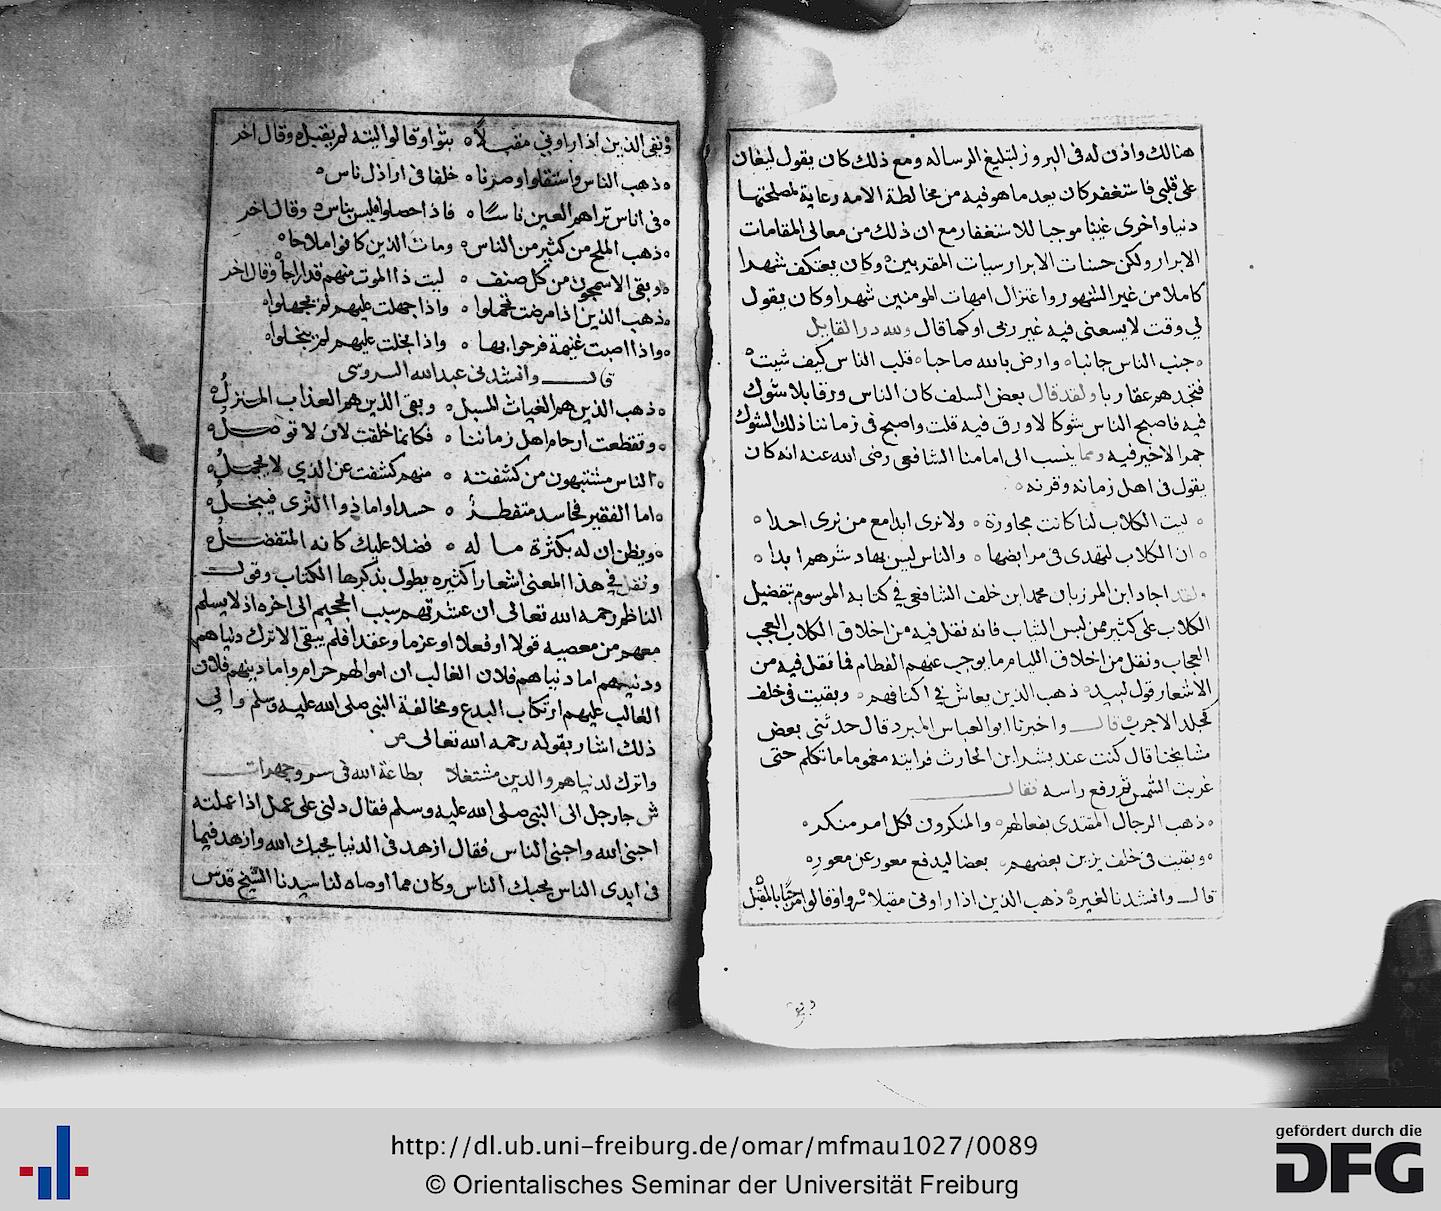 هنالك واذن له فى البروز لتبليغ الرساله ومع ذلك كان يقول ليغان
على قلبى فاستغفر كان بعد ما هو فيه من مخالطة الامه رعاية لمصلحتها
دنيا واخرى غينا موجبا للاستغفار مع ان ذلك من معالى المقامات
الابرار ولكن حسنات الابرار سيات المقربين وكان يعتكف شهدا
كاملا من غير الشهور واعتزال امهات المومنين شهرا وكان يقول
لي وقت لا يسعنى فيه غير ربى او كما قال ولله در القايل
جنب الناس جانبا وارض بالله صاحبا قلب الناس كيف شيت
فتجدهم عقاربا ولقد قال بعض السلف كان الناس ورقا بلا شوك
فيه فاصبح الناس شوكا لا ورق فيه قلت واصبح فى زماننا ذلك الشوك
جمرا لا خير فيه ومما ينسب الى امامنا الشافعى رضى الله عنه انه كان
يقول فى اهل زمانه وقرنه
ليت الكلاب لنا كانت مجاورة ولا نرى ابدا مع من نرى احدا
ان الكلاب لتهدى فى مرابضها والناس ليس بهاد شرهم ابدا
ولقد اجاد ابن المرزبان محمد ابن خلف الشافعى في كتابه الموسوم بتفضيل
الكلاب على كثير ممن لبس الثياب فانه نقل فيه من اخلاق الكلاب العجب
العجاب ونقل من اخلاق الليام ما يوجب عنهم الفطام فما نقل فيه من
الاشعار قول لبيد ذهب الذين يعاش في اكنافهم وبقيت فى خلف
كجلد الاجرب قال واخبرنا ابو العباس المبرد قال حدثنى بعض
مشايخنا قال كنت عند بشر ابن الحارث فرايته مغموما ما تكلم حتى
غربت الشمس ثم رفع راسه فقال
ذهب الرجال المقتدى بفعالهم والمنكرون لكل امر منكر
وبقيت فى خلف يزين بعضهم بعضا ليدفع معور عن معور
قال وانشدنا لغيره ذهب الذين اذا راونى مقبلا سروا وقالوا مرحبا بالمقبل
وبقى
وبقى الذين اذا راوني مقبلا بثوا وقالوا ليته لم يقبل وقال اخر
ذهب الناس واستقلوا وصرنا خلفا فى اراذل ناس
فى اناس تراهم العين ناسا فاذا حصلوا فليس بناس وقال اخر
ذهب الملح من كثير من الناس ومات الذين كانوا ملاحا
وبقى الاسمجون من كل صنف ليت ذا الموت منهم قد اراحا وقال اخر
ذهب الذين اذا مرضت تحملوا واذا جهلت عليهم لم يجهلوا
واذا اصبت غنيمة فرحوا بها واذا بخلت عليهم لم يبخلوا
قال وانشدنى عبد الله السروسى
ذهب الذين هم الغياث المسبل وبقى الذين هم العذاب المنزل
وتقطعت ارحام اهل زماننا فكانما خلقت لان لا توصل
الناس مشتبهون من كشفته منهم كشفت عن الذي لا يجمل
اما الفقير فحاسد متفطر حسدا واما ذوا الثرى فيبخل
ويظن ان له بكثرة ما له فضلا عليك كانه المتفضل
ونقل في هذا المعنى اشعارا كثيره يطول بذكرها الكتاب وقول
الناظم رحمه الله تعالى ان عشرتهم سبب الجحيم الى اخره اذ لا يسلم
معهم من معصيه قولا او فعلا او عزما وعقدا فلم يبقى الا ترك دنياهم
ودنيهم اما دنياهم فلان الغالب ان اموالهم حرام واما دينهم فلان
الغالب عليهم ارتكاب البدع ومخالفة النبى صلى الله عليه وسلم والى
ذلك اشار بقوله رحمه الله تعالى ص
واترك لدنياهم والدين مشتغلا بطاعة الله فى سر وجهرات
ش جا رجل الى النبى صلى الله عليه وسلم فقال دلنى على عمل اذا عملته
احبنى الله واحبنى الناس فقال ازهد فى الدنيا يحبك الله وازهد فيما
فى ايدى الناس يحبك الناس وكان مما اوصاه لنا سيدنا الشيخ قدس
http://dl.ub.uni-freiburg.de/omar/mfmau1027/0089
© Orientalisches Seminar der Universität Freiburg
gefördert durch die
DFG